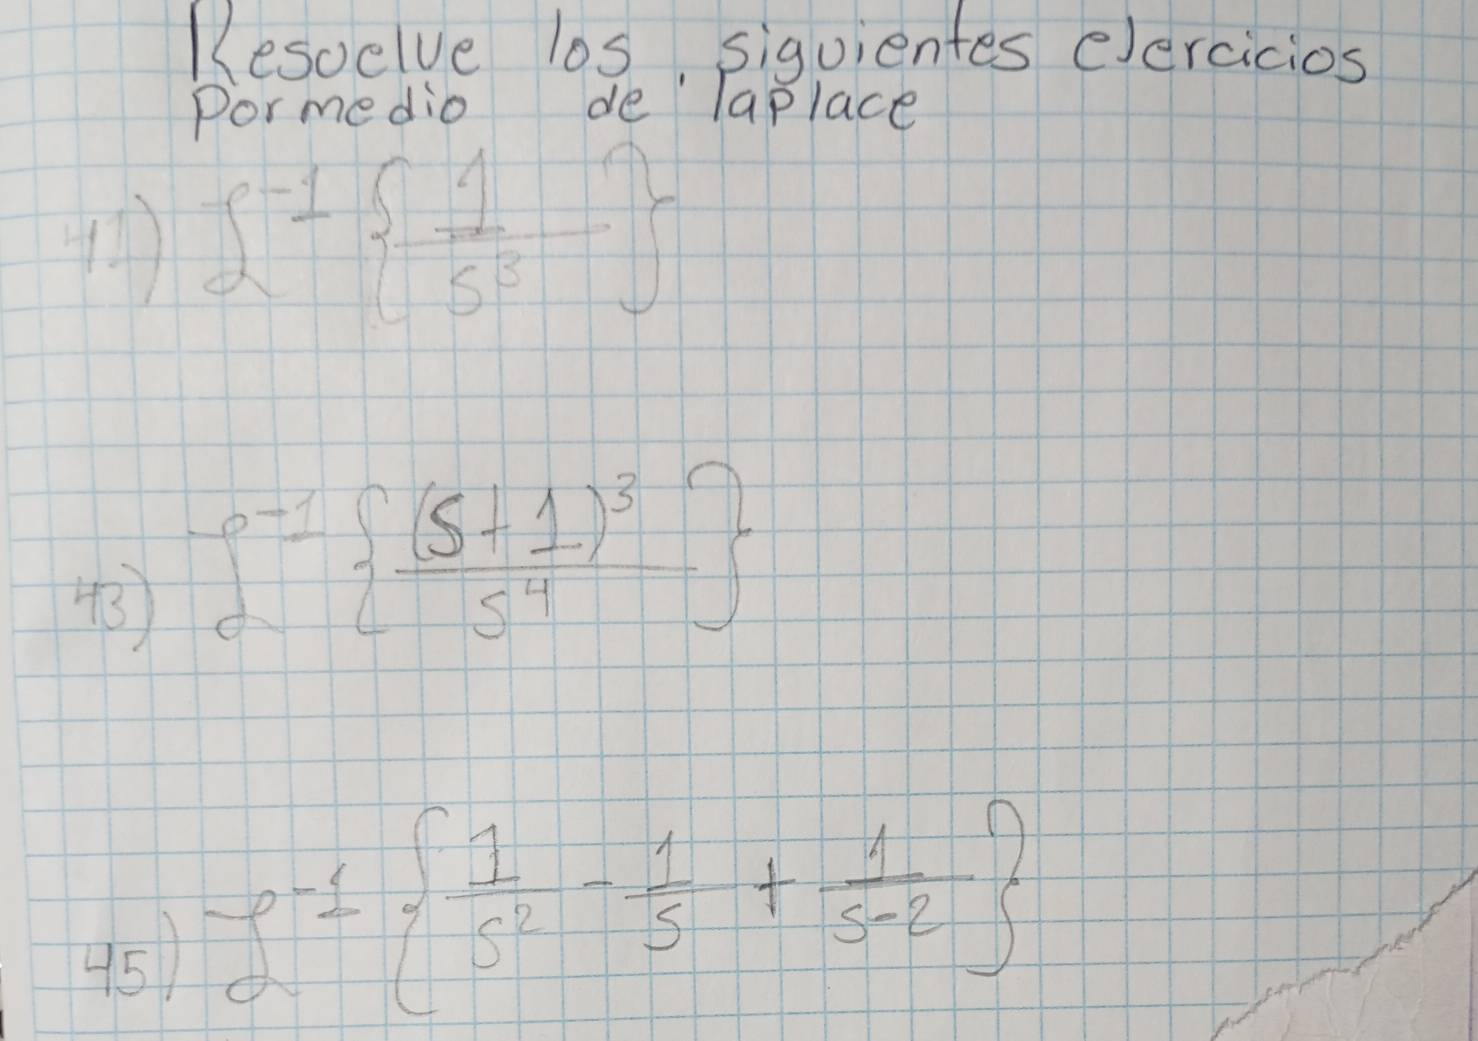 Resuelve los siguientes ejercicios
por medio de laplace
41) ℒ⁻¹ { 1 / s³ }
43) ℒ⁻¹ { (s+1)³ / s⁴ }
45) ℒ⁻¹ { 1 / s² - 1 / s + 1 / s-2 }